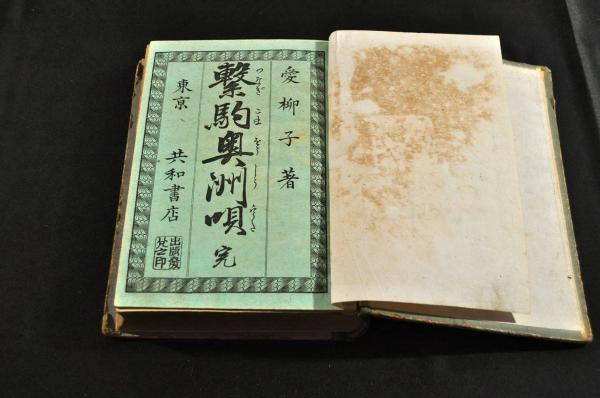 愛柳子著
繋駒奥洲唄 完
つなぎ こま おうしううた
東京 共和書店
出版發兌之印